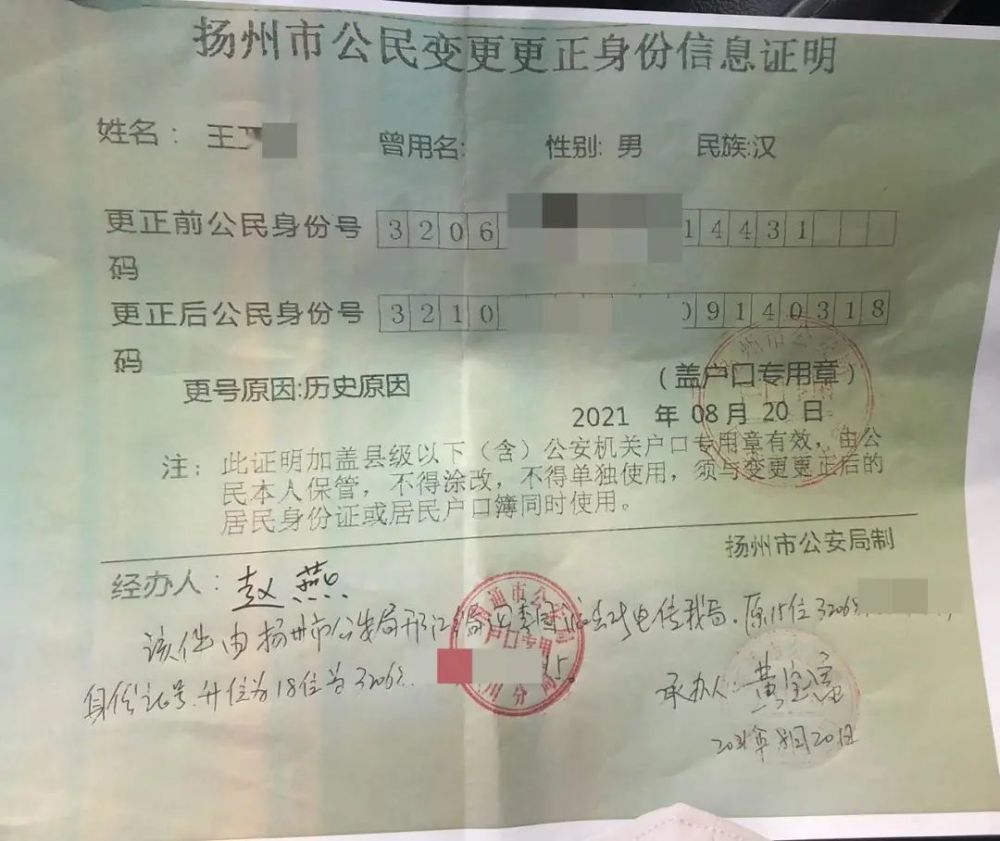 扬州市公民变更更正身份信息证明
姓名： 王 曾用名: 性别: 男 民族:汉
更正前公民身份号 3206 14431
码
更正后公民身份号 3210 09140318
码
更号原因:历史原因 （盖户口专用章）
2021 年 08 月 20 日
注： 此证明加盖县级以下（含）公安机关户口专用章有效，由公
民本人保管，不得涂改，不得单独使用，须与变更更正后的
居民身份证或居民户口簿同时使用。
扬州市公安局制
经办人：赵燕
该件由扬州市公安局邗江分局 派出所电传我局，原15位32062
身份证号升位为18位为32062 15。
承办人：黄
2021年8月20日
通市公安局
户口专用
川分局